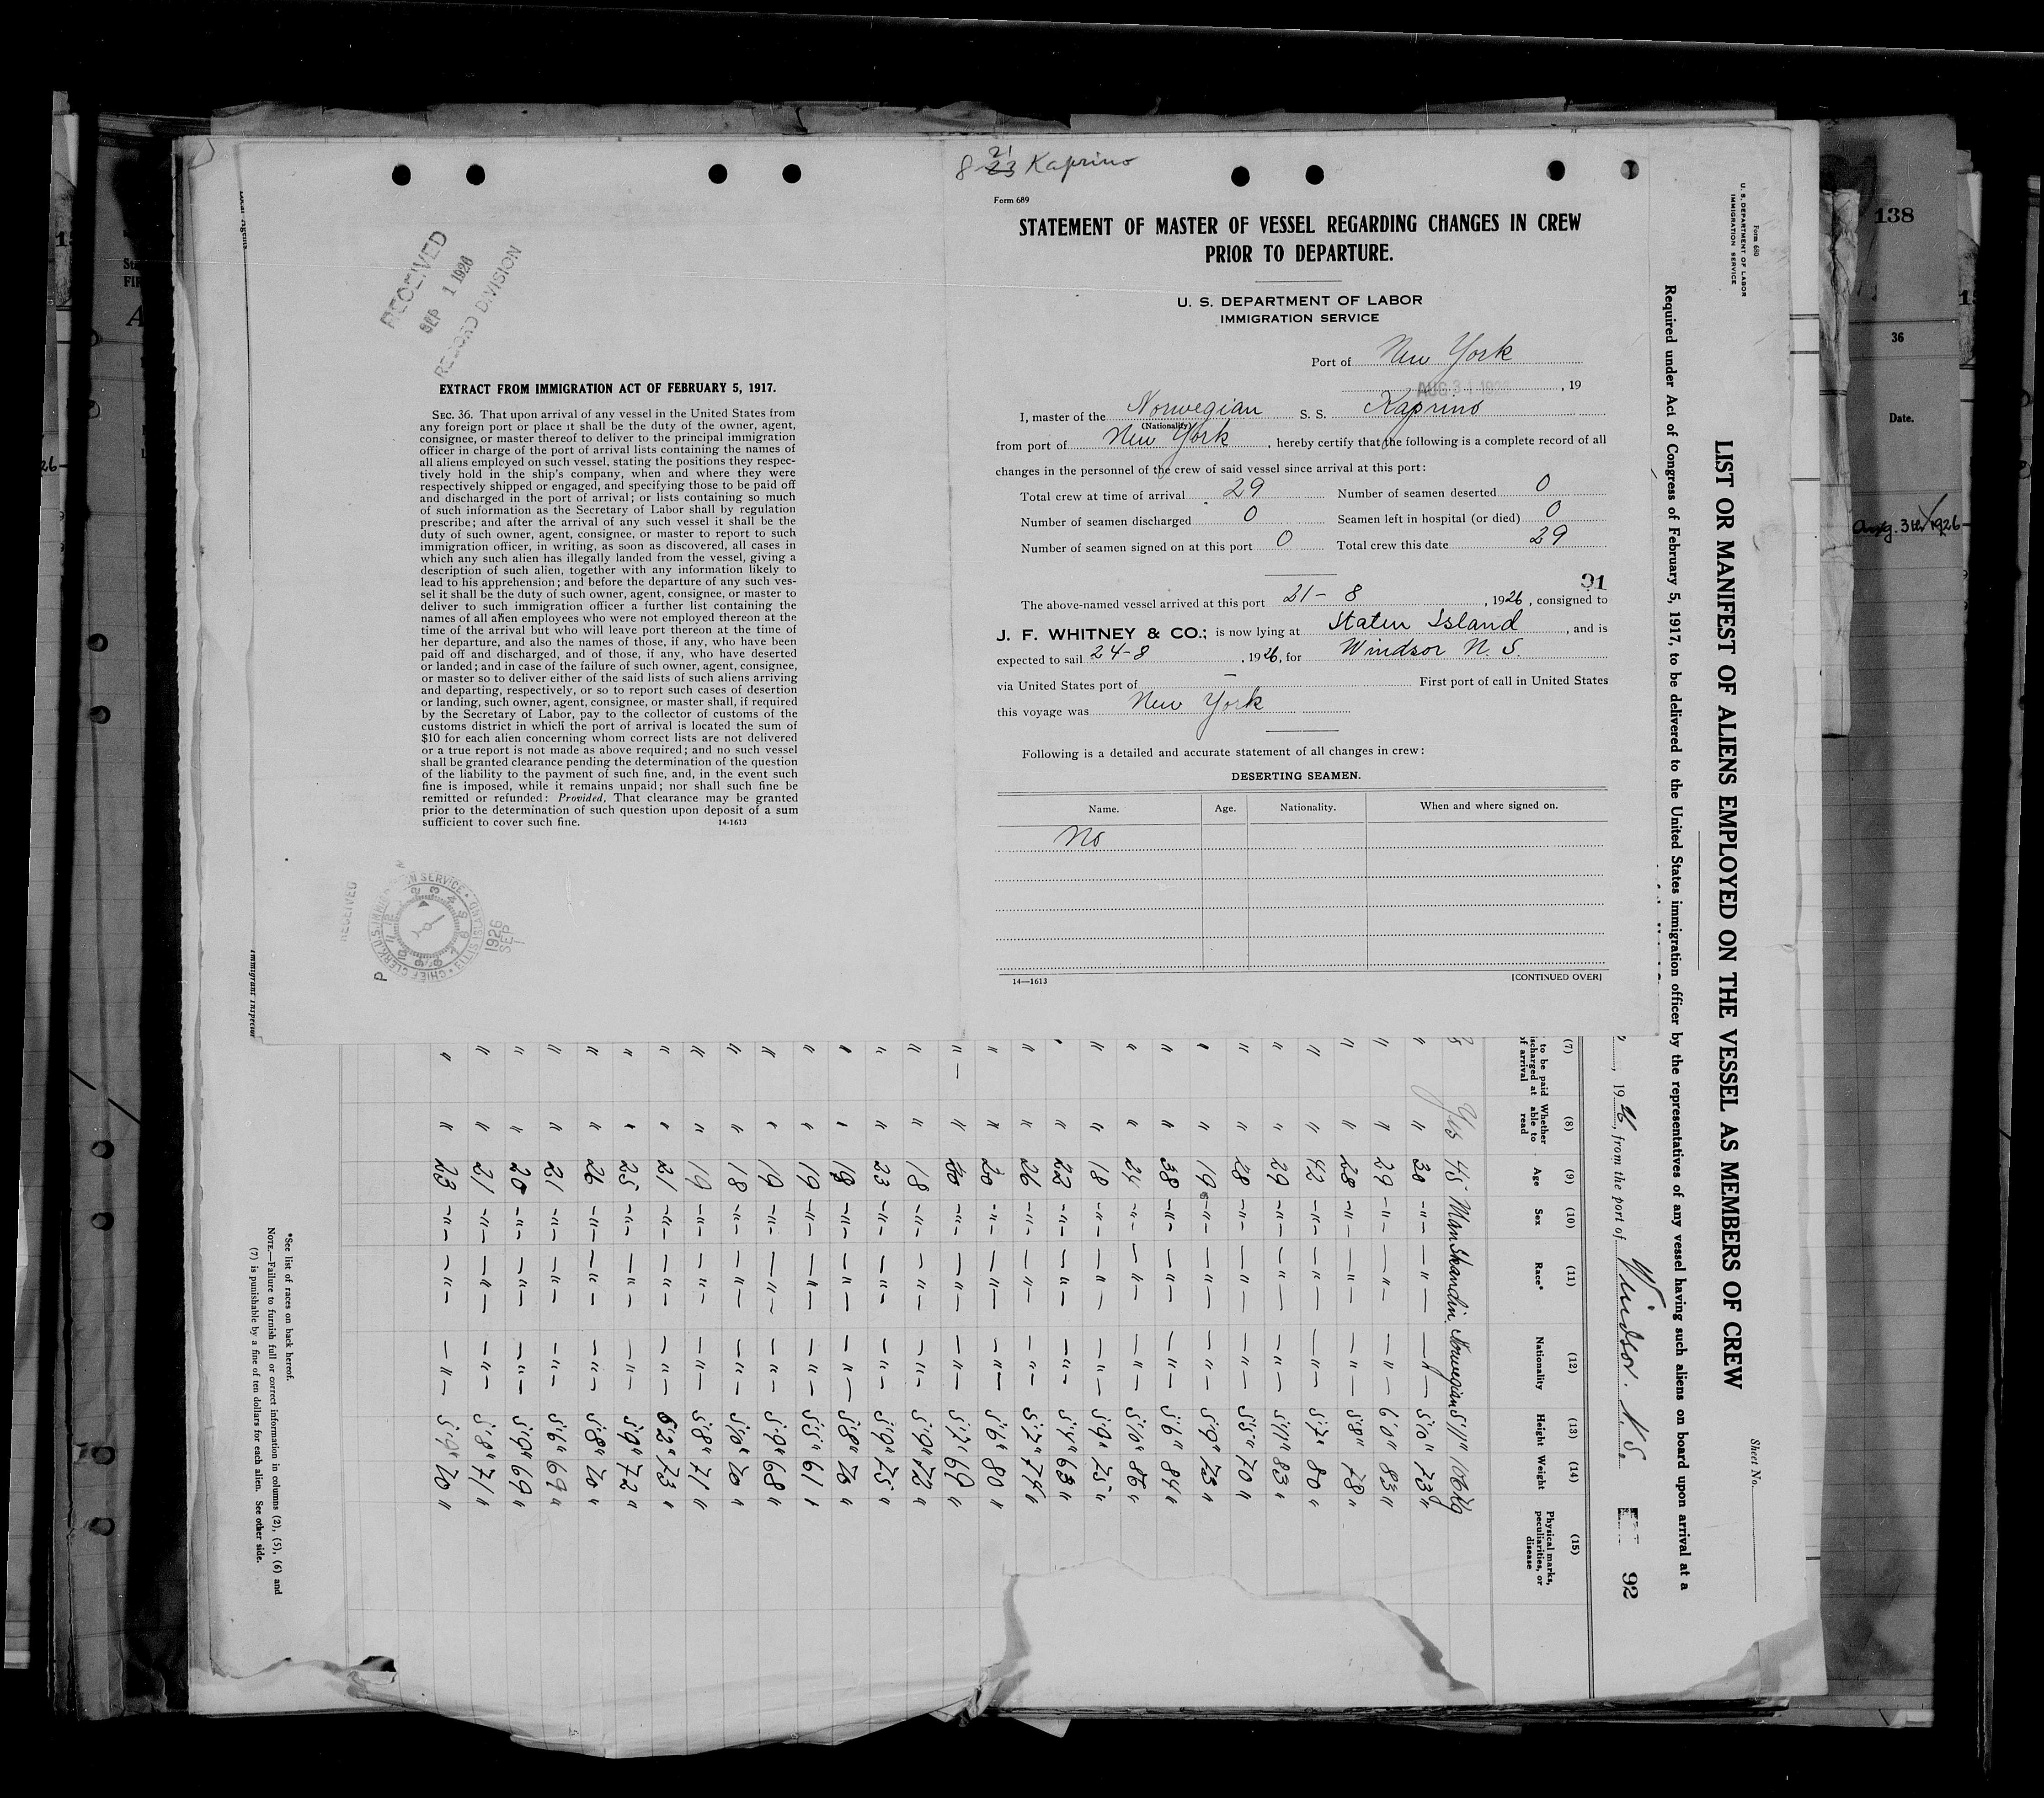 8-21 23 Kaprino
Form 689
STATEMENT OF MASTER OF VESSEL REGARDING CHANGES IN CREW
PRIOR TO DEPARTURE.
U. S. DEPARTMENT OF LABOR
IMMIGRATION SERVICE
Port of New York
AUG 31 1926, 19
I, master of the Norwegian S. S. Kaprino
(Nationality)
from port of New York, hereby certify that the following is a complete record of all
changes in the personnel of the crew of said vessel since arrival at this port:
Total crew at time of arrival 29 Number of seamen deserted 0
Number of seamen discharged 0 Seamen left in hospital (or died) 0
Number of seamen signed on at this port 0 Total crew this date 29
91
The above-named vessel arrived at this port 21-8, 1926, consigned to
J. F. WHITNEY & CO.; is now lying at Staten Island, and is
expected to sail 24-8, 1926, for Windsor N. S.
via United States port of — First port of call in United States
this voyage was New York
Following is a detailed and accurate statement of all changes in crew:
DESERTING SEAMEN.
Name. Age. Nationality. When and where signed on.
No
14—1613 [CONTINUED OVER]
RECEIVED
SEP 1 1926
RECORD DIVISION
EXTRACT FROM IMMIGRATION ACT OF FEBRUARY 5, 1917.
SEC. 36. That upon arrival of any vessel in the United States from
any foreign port or place it shall be the duty of the owner, agent,
consignee, or master thereof to deliver to the principal immigration
officer in charge of the port of arrival lists containing the names of
all aliens employed on such vessel, stating the positions they respec-
tively hold in the ship's company, when and where they were
respectively shipped or engaged, and specifying those to be paid off
and discharged in the port of arrival; or lists containing so much
of such information as the Secretary of Labor shall by regulation
prescribe; and after the arrival of any such vessel it shall be the
duty of such owner, agent, consignee, or master to report to such
immigration officer, in writing, as soon as discovered, all cases in
which any such alien has illegally landed from the vessel, giving a
description of such alien, together with any information likely to
lead to his apprehension; and before the departure of any such ves-
sel it shall be the duty of such owner, agent, consignee, or master to
deliver to such immigration officer a further list containing the
names of all alien employees who were not employed thereon at the
time of the arrival but who will leave port thereon at the time of
her departure, and also the names of those, if any, who have been
paid off and discharged, and of those, if any, who have deserted
or landed; and in case of the failure of such owner, agent, consignee,
or master so to deliver either of the said lists of such aliens arriving
and departing, respectively, or so to report such cases of desertion
or landing, such owner, agent, consignee, or master shall, if required
by the Secretary of Labor, pay to the collector of customs of the
customs district in which the port of arrival is located the sum of
$10 for each alien concerning whom correct lists are not delivered
or a true report is not made as above required; and no such vessel
shall be granted clearance pending the determination of the question
of the liability to the payment of such fine, and, in the event such
fine is imposed, while it remains unpaid; nor shall such fine be
remitted or refunded: Provided, That clearance may be granted
prior to the determination of such question upon deposit of a sum
sufficient to cover such fine. 14-1613
RECEIVED
1926
SEP 1
P
Form 680
U. S. DEPARTMENT OF LABOR
IMMIGRATION SERVICE
Sheet No.
LIST OR MANIFEST OF ALIENS EMPLOYED ON THE VESSEL AS MEMBERS OF CREW
Required under Act of Congress of February 5, 1917, to be delivered to the United States immigration officer by the representatives of any vessel having such aliens on board upon arrival at a
, 1926, from the port of Windsor. N.S. 92
(7) (8) (9) (10) (11) (12) (13) (14) (15)
to be paid
Whether able to read Age Sex Race* Nationality Height Weight Physical marks, peculiarities, or disease
Yes 45 Man Skandin. Norwegian 5'11" 106 Kg
" " 30 -"- -"- -"- 5'10" 73 "
" " 29 -"- -"- -"- 6'0" 83 "
" " 28 -"- -"- -"- 5'8" 78 "
" " 42 -"- -"- -"- 5'7" 80 "
" " 29 -"- -"- -"- 5'11" 83 "
" " 28 -"- -"- -"- 5'5" 70 "
" " 19 -"- -"- -"- 5'9" 73 "
" " 38 -"- -"- -"- 5'6" 84 "
" " 24 -"- -"- -"- 5'10" 86 "
" " 18 -"- -"- -"- 5'9" 75 "
" " 22 -"- -"- -"- 5'4" 63 "
" " 26 -"- -"- -"- 5'7" 74 "
" " 20 -"- -"- -"- 5'6" 80 "
" " 20 -"- -"- -"- 5'7" 69 "
" " 18 -"- -"- -"- 5'9" 72 "
" " 23 -"- -"- -"- 5'9" 75 "
" " 19 -"- -"- -"- 5'8" 70 "
" " 19 -"- -"- -"- 5'5" 61 "
" " 19 -"- -"- -"- 5'9" 68 "
" " 18 -"- -"- -"- 5'10" 70 "
" " 19 -"- -"- -"- 5'8" 71 "
" " 21 -"- -"- -"- 6'2" 73 "
" " 25 -"- -"- -"- 5'9" 72 "
" " 26 -"- -"- -"- 5'8" 70 "
" " 21 -"- -"- -"- 5'6" 69 "
" " 20 -"- -"- -"- 5'9" 69 "
" " 21 -"- -"- -"- 5'8" 71 "
" " 23 -"- -"- -"- 5'9" 70 "
*See list of races on back hereof.
NOTE.—Failure to furnish full or correct information in columns (2), (5), (6) and
(7) is punishable by a fine of ten dollars for each alien. See other side.
Immigrant Inspector
138
36
Date.
Aug. 31st 1926